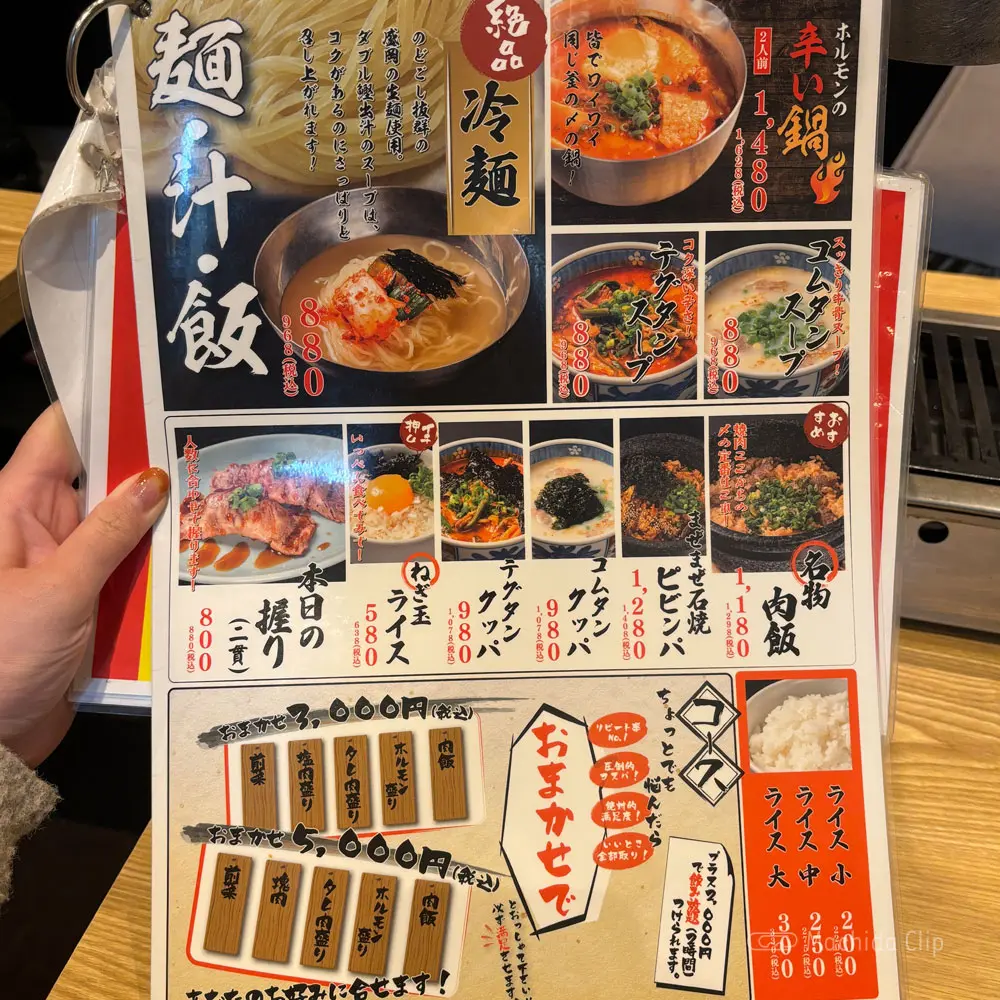 麺・汁・飯
絶品
冷麺
のどごし抜群の
盛岡の生麺使用。
ダブル鰹出汁のスープは、
コクがあるのにさっぱりと
召し上がれます！
880
968(税込)
ホルモンの
辛い鍋
2人前
1,480
1,628(税込)
皆でワイワイ
同じ釜の〆の鍋！
コク深い辛さ！
テグタン
スープ
880
968(税込)
コムタン
スープ
880
968(税込)
おすすめ
焼肉ここからの
名物
肉飯
1,180
1,298(税込)
まぜまぜ石焼
ピビンパ
1,280
1,408(税込)
コムタン
クッパ
980
1,078(税込)
テグタン
クッパ
980
1,078(税込)
イチ押し
いっぺん食べてみて！
ねぎ玉
ライス
580
638(税込)
人数に合わせて握ります！
本日の
握り
(二貫)
800
880(税込)
コース
ちょっとでも
悩んだら
おまかせで
リピート率
No.1
圧倒的
コスパ！
絶対的
満足度！
いいとこ
全部取り！
プラス2,000円
で飲み放題(2時間)
つけられます。
おまかせ3,000円(税込)
前菜
塩肉盛り
タレ肉盛り
ホルモン盛り
肉飯
おまかせ5,000円(税込)
前菜
塊肉
タレ肉盛り
ホルモン盛り
肉飯
とおっしゃって下さい
必ず満足させます。
あなたのお好みに合せます！
ライス 小
200
ライス 中
250
275(税込)
ライス 大
300
330(税込)
Machida Clip